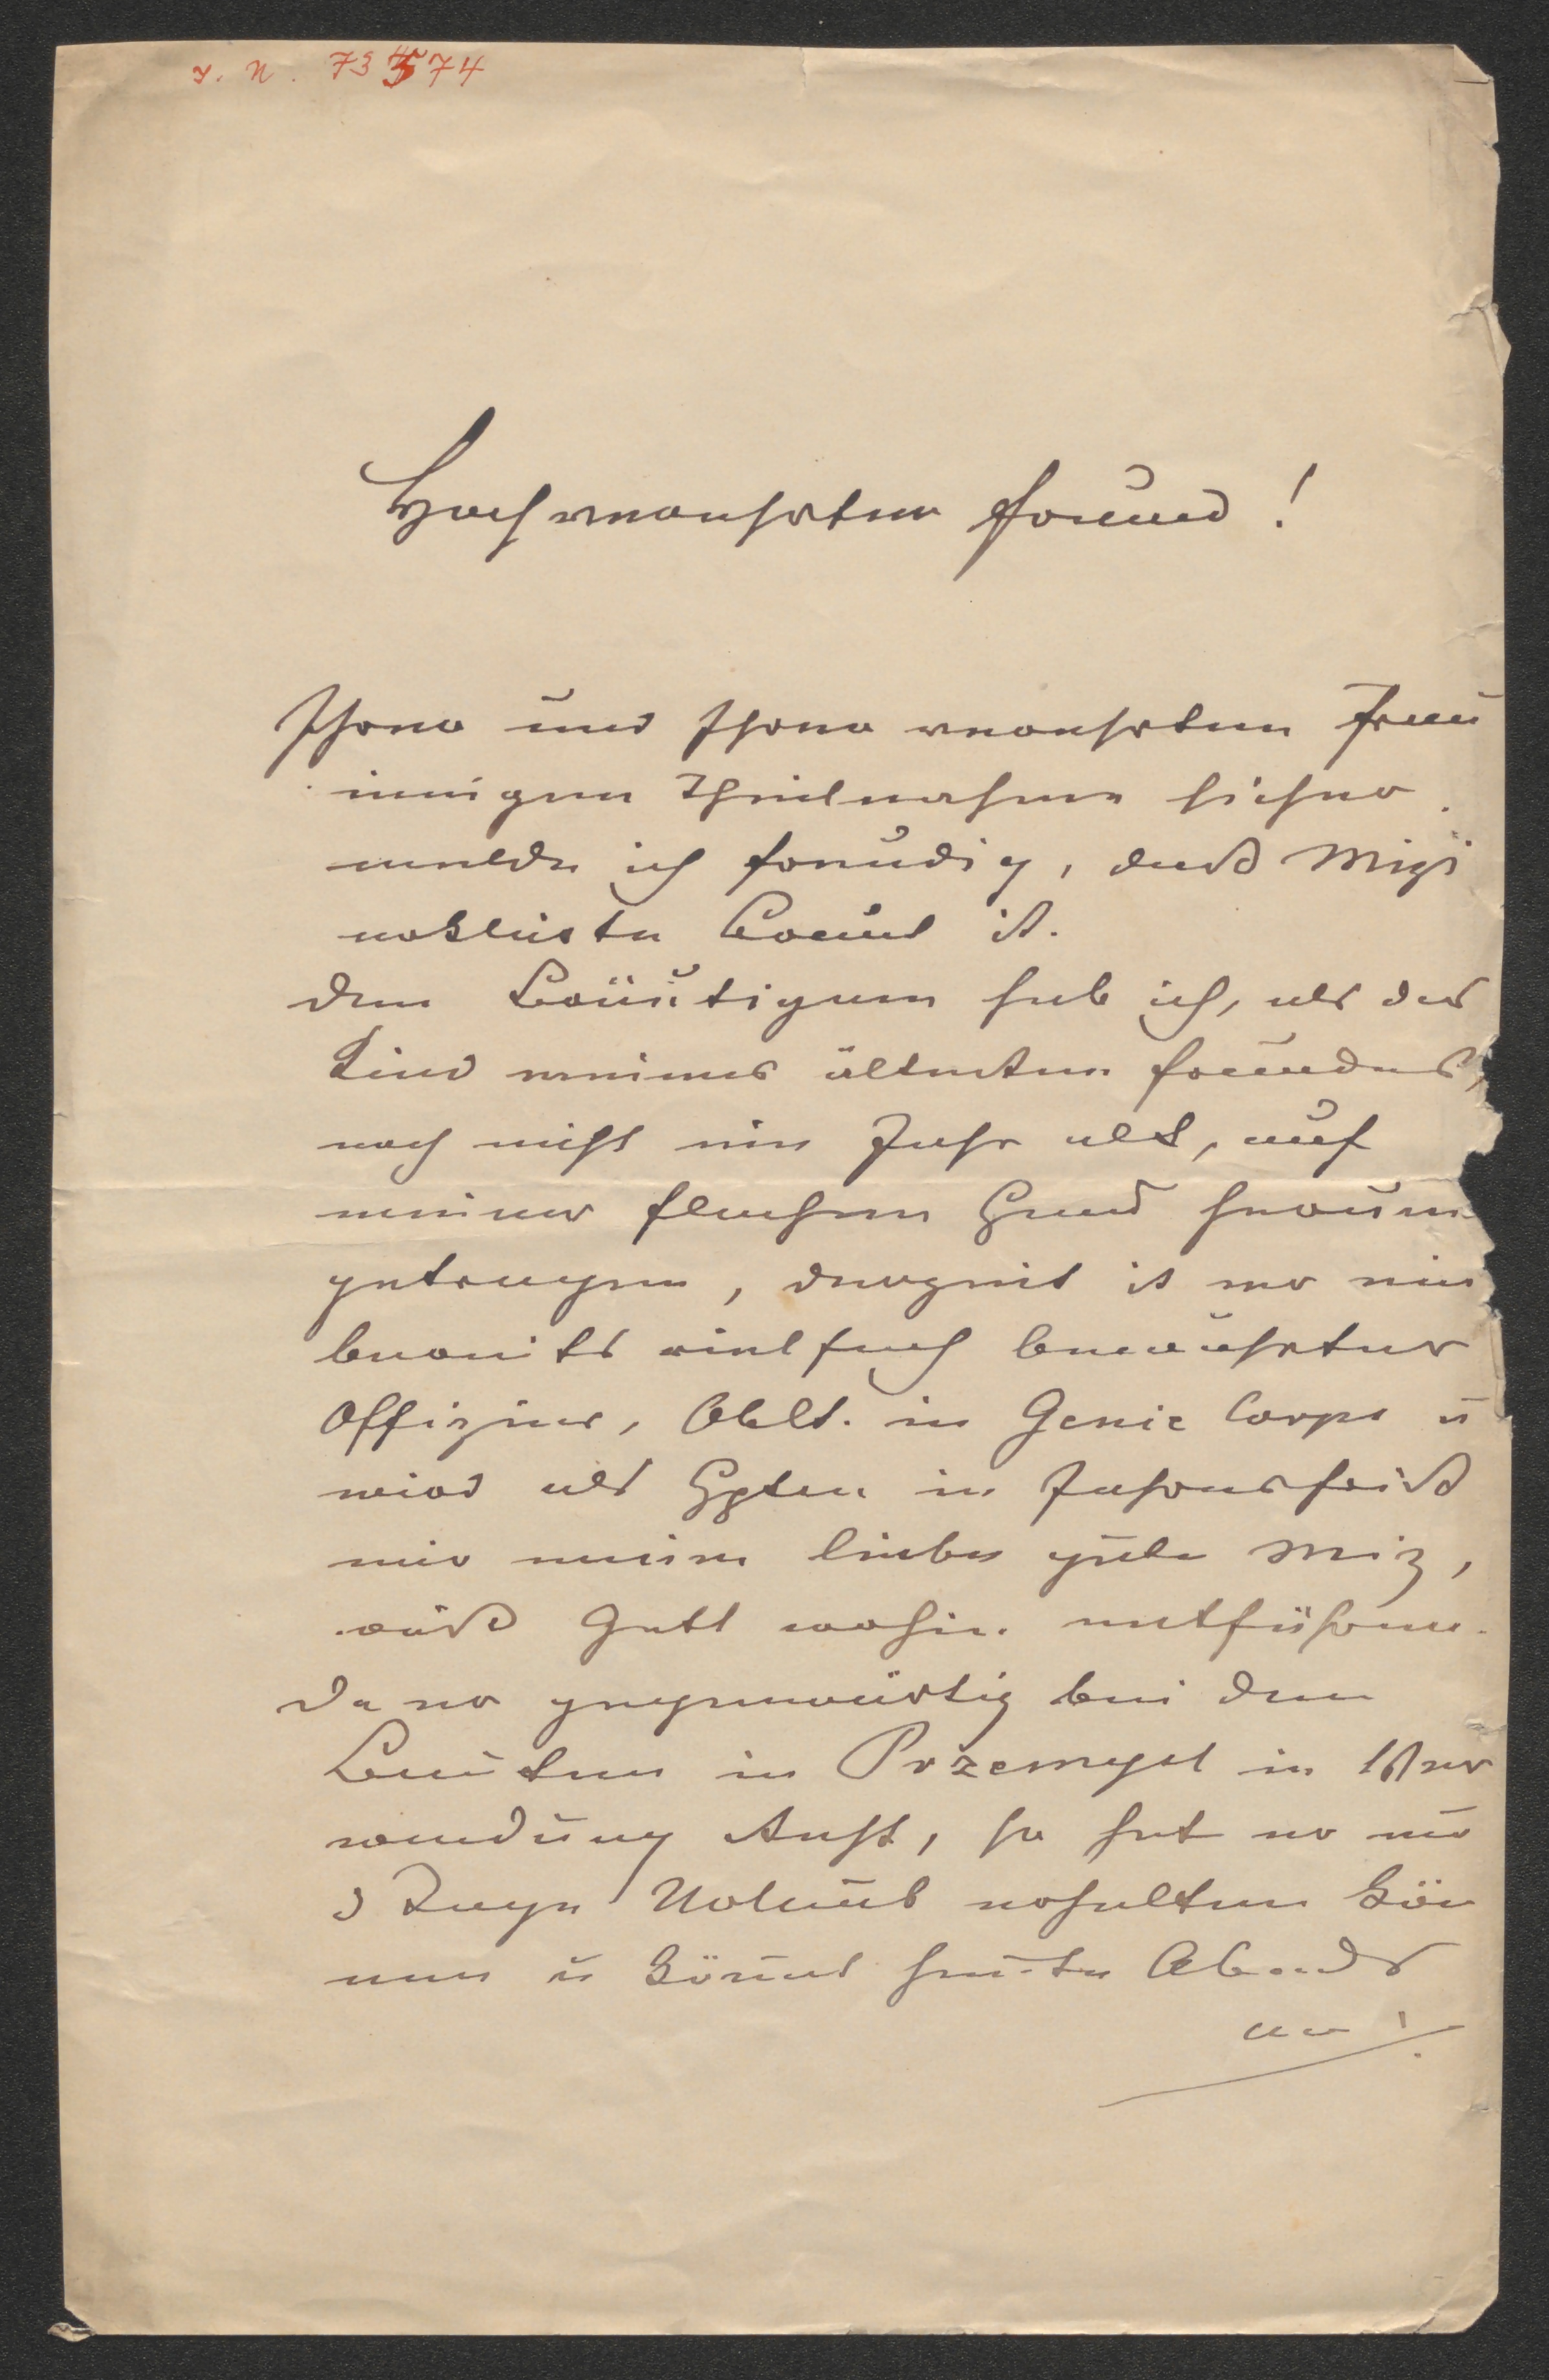 I. N. 73574
Hochverehrter Freund!
Ihrer und Ihrer verehrten Frau
innigen Theilnahme sicher
melde ich freudig, daß Mizi
erklärte Braut ist.
Den Bräutigam hab ich, als das
Kind meines ältesten Freundes,
noch nicht ein Jahr alt, auf
meiner flachen Hand herum
getragen, derzeit ist er ein
bereits vielfach bewährter
Offizier, Oblt. im Genie Corps u
wird als Hptm in Jahresfrist
mir meine liebe gute Miz,
weiß Gott wohin entführen.
Da er gegenwärtig bei den
Bauten in Przemysl in Ver
wendung steht, so hat er nur
3 Tage Urlaub erhalten kön
nen u kömmt heute Abends
an!